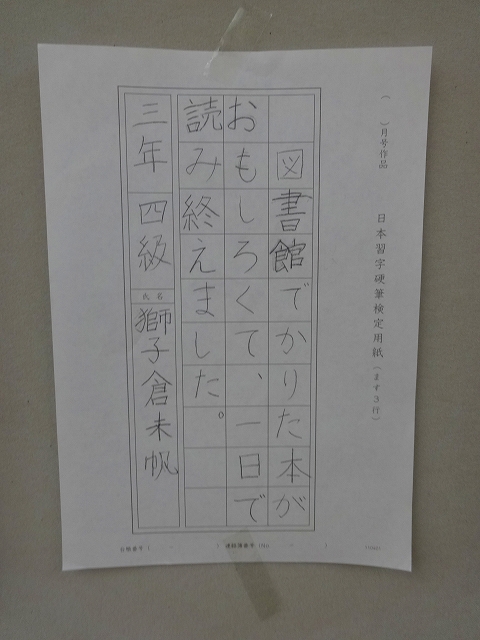 ( )月号作品
日本習字硬筆検定用紙(ます3行)
図書館でかりた本が
おもしろくて、一日で
読み終えました。
三年 四級
氏名
獅子倉未帆